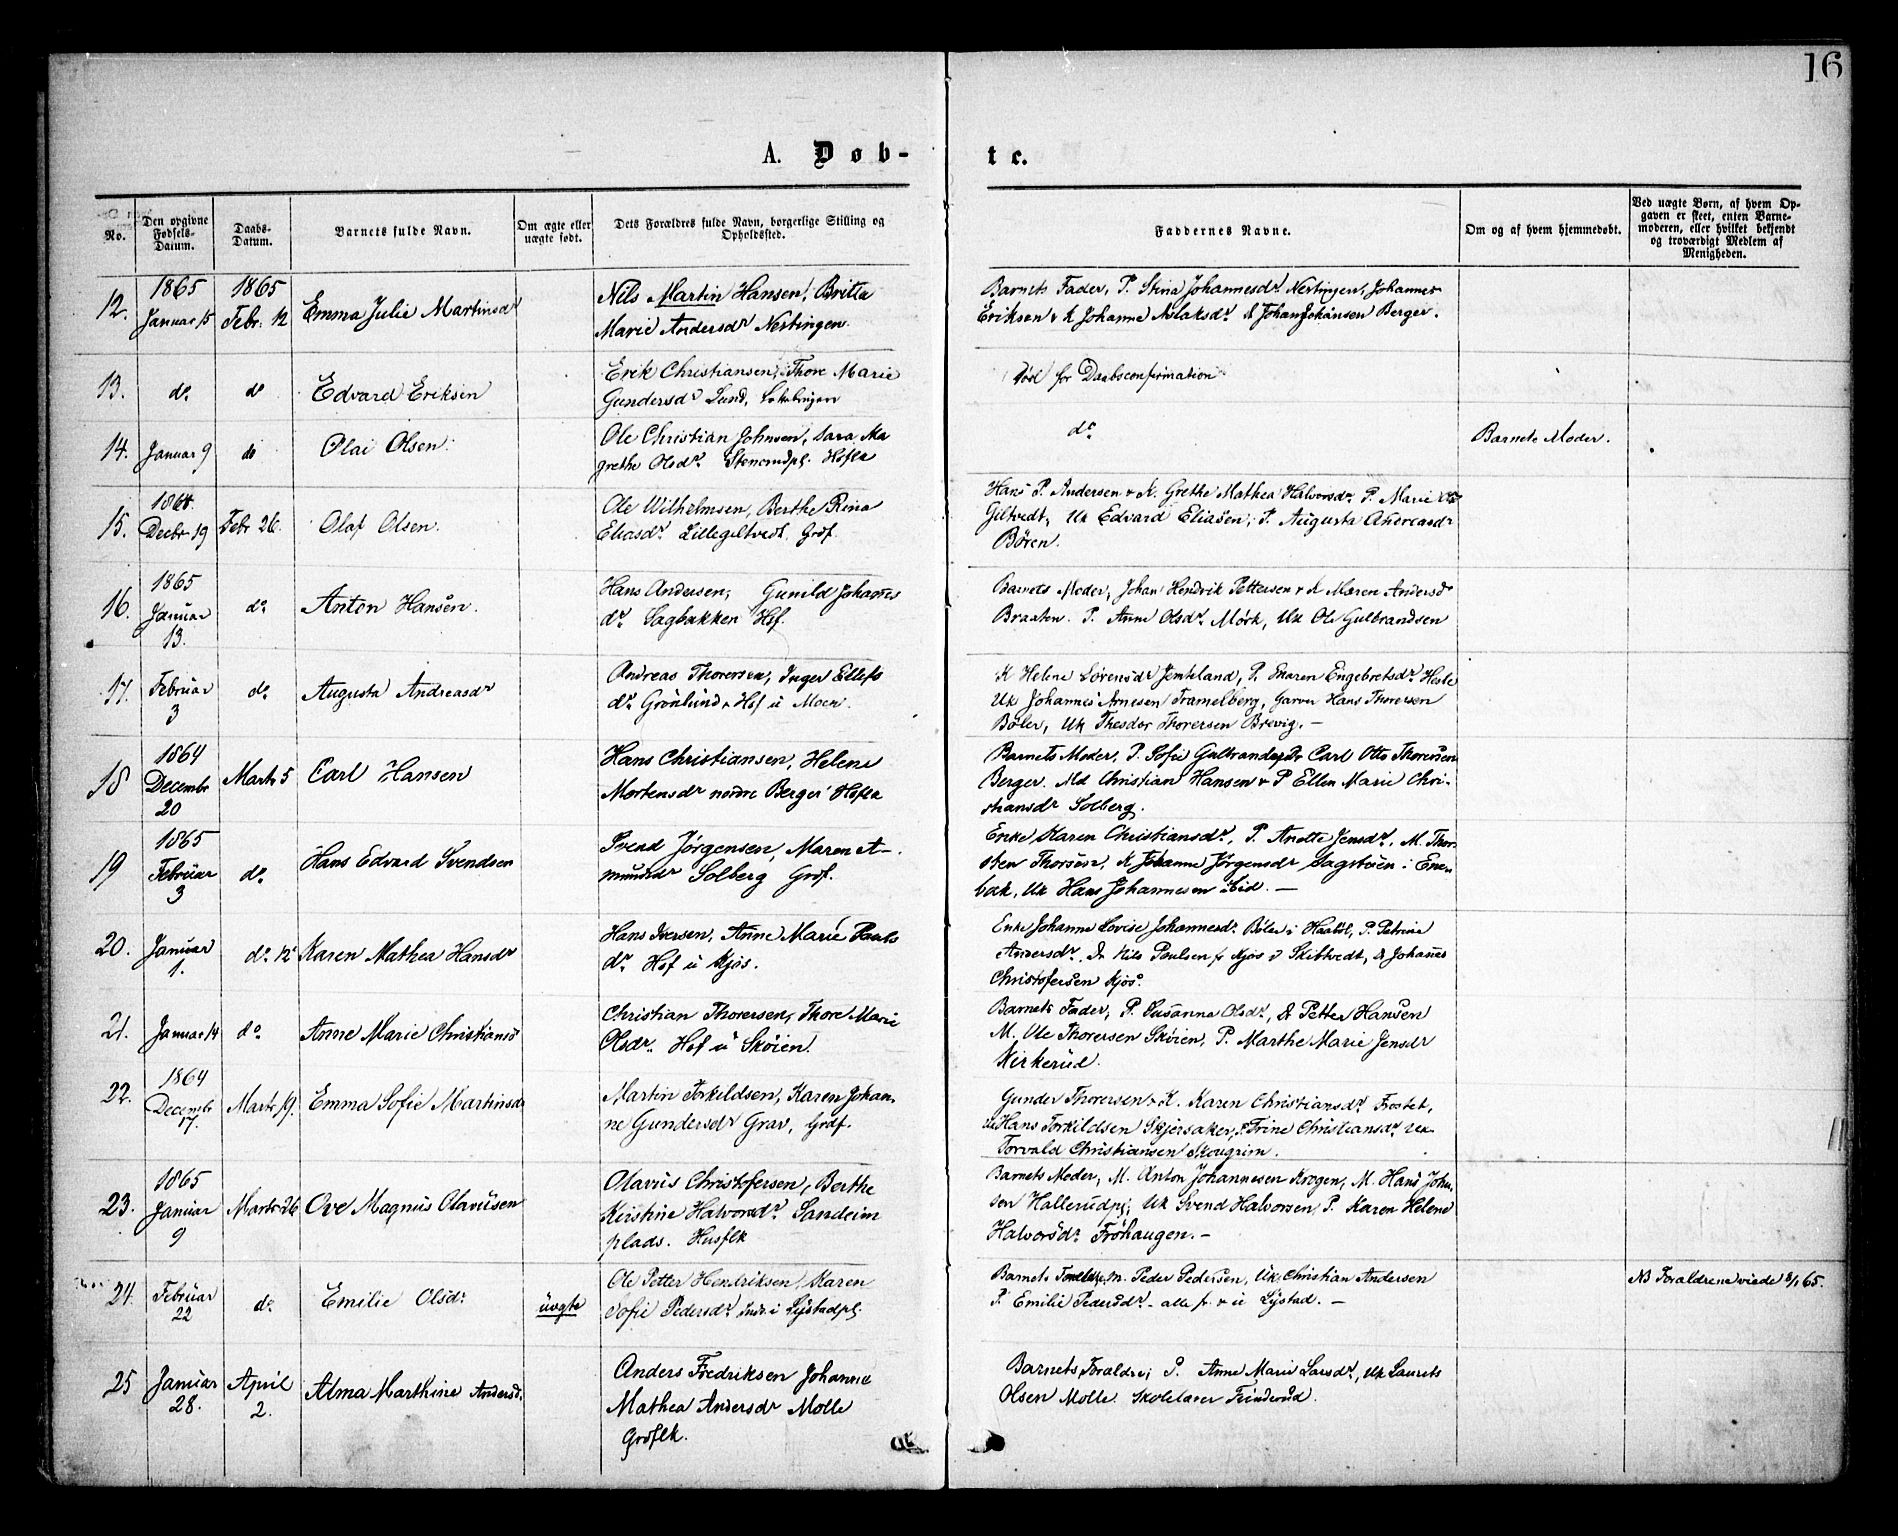 16
A. Døb-
te.
No.
Den opgivne Fødsels-Datum.
Daabs-Datum.
Barnets fulde Navn.
Om ægte eller uægte født.
Dets Forældres fulde Navn, borgerlige Stilling og Opholdssted.
Faddernes Navne.
Om og af hvem hjemmedøbt.
Ved uægte Børn, af hvem Op-
gaven er skeet, enten Barne-
moderen, eller hvilket bekjendt
og troværdigt Medlem af
Menigheden.
12. 1865 Januar 15 1865 Febr. 12 Emma Julie Martinsdr
Nils Martin Hansen, Britta
Marie Andersdr Nertingen.
Barnets Fader, P. Stina Johannesdr Nertingen, Johannes
Eriksen & K Johanne Berger.
13. do do Edvard Eriksen
Erik Christiansen, Thore Marie
Gundersdr Lund,
for Daabsconfirmation
14. Januar 9 do Olai Olsen.
Ole Christian Johnsen, Sara Ma
grethe Olsdr
do
Barnets Moder.
15. 1864. Decbr 19 Febr 26. Olaf Olsen.
Ole Wilhelmsen, Berthe Rina
Eliasdr Lillegiltvedt. Grdf.
Hans P. Andersen & K. Grethe Mathea Halvorsdr P. Marie
Giltvedt, Uk Edvard Eliasen, P. Augusta Andreasdr
Børen.
16. 1865 Januar 13. do Anton Hansen.
Hans Andersen, Gunild Johannes
dr Sagbakken Hsf.
Barnets Moder, Johan Hendrik Pettersen & K Maren Andersdr
Braaten. P. Anne Olsdr Mørk, Uk Ole Gulbrandsen
17. Februar 3 do Augusta Andreasdr
Andreas Thorersen, Inger Ellefs
dr Grønlund Hsf u Moen.
K Helene Sørensdr Jemteland, P. Maren Engebretsdr
Uk Johannes Arnesen Tramelberg, Garver Hans Thorersen
Bøler, Uk Theodor Thorersen Brevig. —
18 1864 Decembr 20 Marts 5 Carl Hansen
Hans Christiansen, Helene
Mortensdr nordre Berger
Barnets Moder, P. Sofie Gulbrandsdr Carl Otto Thoresen
Berger. Md Christian Hansen & P Ellen Marie Chri-
stiansdr Solberg.
19 1865 Februar 3 do Hans Edvard Svendsen
Svend Jørgensen, Maren A-
mundsdr Solberg Grdf.
Enke Karen Christiansdr, P. Anette Jensdr, M. Thor-
sten Thorsen, K Johanne Jørgensdr Sagstuen i Ene-
bak, Uk Hans Johannesen Lid. —
20. Januar 1. do Karen Mathea Hansdr
Hans Iversen, Anne Marie Pauls
dr Hsf u Kjos.
Enke Johanne Lovise Johannesdr Bøler i Haabøl, P. Petrine
Andersdr. Nils Poulsen fr Kjos i Skibtvedt, & Johannes
Christofersen Kjos.
21. Januar 14 do. Anne Marie Christiansd
Christian Thorersen, Thore Marie
Olsdr. Hsf u Skøien.
Barnets Fader, P. Susanna Olsdr, Petter Hansen
M. Ole Thorersen Skøien, P. Marthe Marie Jensdr
Kirkerud.
22. 1864 Decembr 17. Marts 19. Emma Sofie Martinsdr
Martin Torkildsen, Karen Johan-
ne Gundersdr Grav, Grdf.
Gunder Thorersen & K. Karen Christiansdr Frostet,
Uk Hans Torkildsen Skjersaker, P. Trine Christiansdr Uk
Torvald Christiansen Skougrim.
23. 1865 Januar 9 Marts 26 Ove Magnus Olavusen
Olavus Christofersen, Berthe
Kirstine Halvorsdr Sandeim
plads. Husflk
Barnets Moder, M. Anton Johannesen Krogen, M. Hans John-
sen Hallerudpl; Uk Svend Halvorsen, P. Karen Helene
Halvorsdr Frøhaugen. —
24. Februar 22 do. Emilie Olsdr uægte
Ole Petter Hendriksen, Karen
Sofie Pedersdr Inds. i Lystadpl.
Barnets Forældre, M. Peder Pedersen, Uk Christian Andersen
P. Emilie Pedersdr - alle fr & u Lystad. —
NB Forældrene viede 8/1 65.
25 Januar 28. April 2. Alma Marthine Andersd.
Anders Fredriksen Johanne
Mathea Andersdr Molle
Grdflk.
Barnets Forældre; P. Anne Marie Larsdr, Uk Laurits
Olsen Molle. Skolelærer Trinderud.